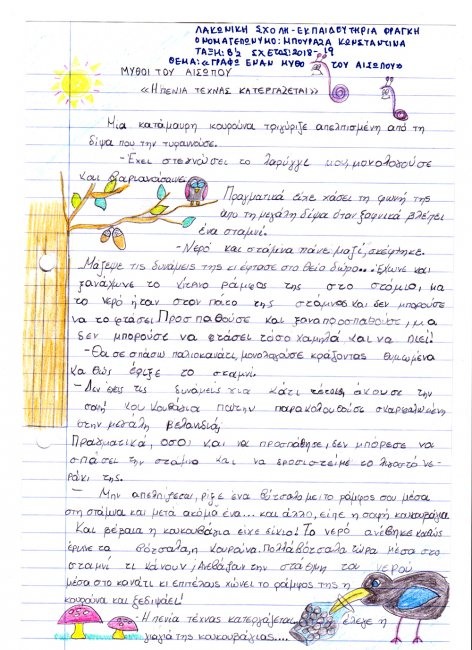 ΛΑΚΩΝΙΚΗ ΣΧΟΛΗ-ΕΚΠΑΙΔΕΥΤΗΡΙΑ ΦΡΑΓΚΗ
ΟΝΟΜΑΤΕΠΩΝΥΜΟ: ΜΠΟΥΡΑΖΑ ΚΩΝΣΤΑΝΤΙΝΑ
ΤΑΞΗ: Β'2 ΣΧ ΕΤΟΣ: 2018-19
ΘΕΜΑ: «ΓΡΑΦΩ ΕΝΑΝ ΜΥΘΟ ΤΟΥ ΑΙΣΩΠΟΥ»
ΜΥΘΟΙ ΤΟΥ ΑΙΣΩΠΟΥ
«Η ΠΕΝΙΑ ΤΕΧΝΑΣ ΚΑΤΕΡΓΑΖΕΤΑΙ»
Μια κατάμαυρη κουρούνα τριγύριζε απελπισμένη από τη
δίψα που την τυραννούσε.
-Έχει στεγνώσει το λαρύγγι μου, μονολογούσε
και βαριανάσαινε.
Πραγματικά είχε χάσει τη φωνή της
από τη μεγάλη δίψα όταν ξαφνικά βλέπει
ένα σταμνί.
-Νερό και στάμνα πάνε μαζί, σκέφτηκε.
Μάζεψε τις δυνάμεις της κι έφτασε στο θείο δώρο... Έχωνε και
ξανάχωνε το κίτρινο ράμφος της στο στόμιο, μα
το νερό ήταν στον πάτο της στάμνας και δεν μπορούσε
να το φτάσει. Προσπαθούσε και ξαναπροσπαθούσε, μα
δεν μπορούσε να φτάσει τόσο χαμηλά και να πιεί!
-Θα σε σπάσω παλιοκανάτι, μονολογούσε κράζοντας θυμωμένα
καθώς έφτυζε το σταμνί.
-Δεν έχεις τις δυνάμεις για κάτι τέτοιο, άκουσε την
σοφή κουκουβάγια που την παρακολουθούσε σκαρφαλωμένη
στην μεγάλη βελανιδιά.
Πραγματικά, όσο και να προσπάθησε, δεν μπόρεσε να
σπάσει την στάμνα και να δροσιστεί με το λιγοστό νε-
ράκι της.
- Μην απελπίζεσαι, ρίξε ένα βότσαλο με το ράμφος σου μέσα
στη στάμνα και μετά ακόμα ένα... και άλλο, είπε η σοφή κουκουβάγια.
Και βέβαια η κουκουβάγια είχε δίκιο! Το νερό ανέβηκε καθώς
έριχνε τα βότσαλα, η κουρούνα. Πολλά βότσαλα τώρα μέσα στο
σταμνί τι κάνουν; Ανέβαζαν την στάθμη του νερού
μέσα στο κανάτι κι επιτέλους χώνει το ράμφος της η
κουρούνα και ξεδιψάει!
-Η πενία τέχνας κατεργάζεται, έλεγε η
γιαγιά της κουκουβάγιας....